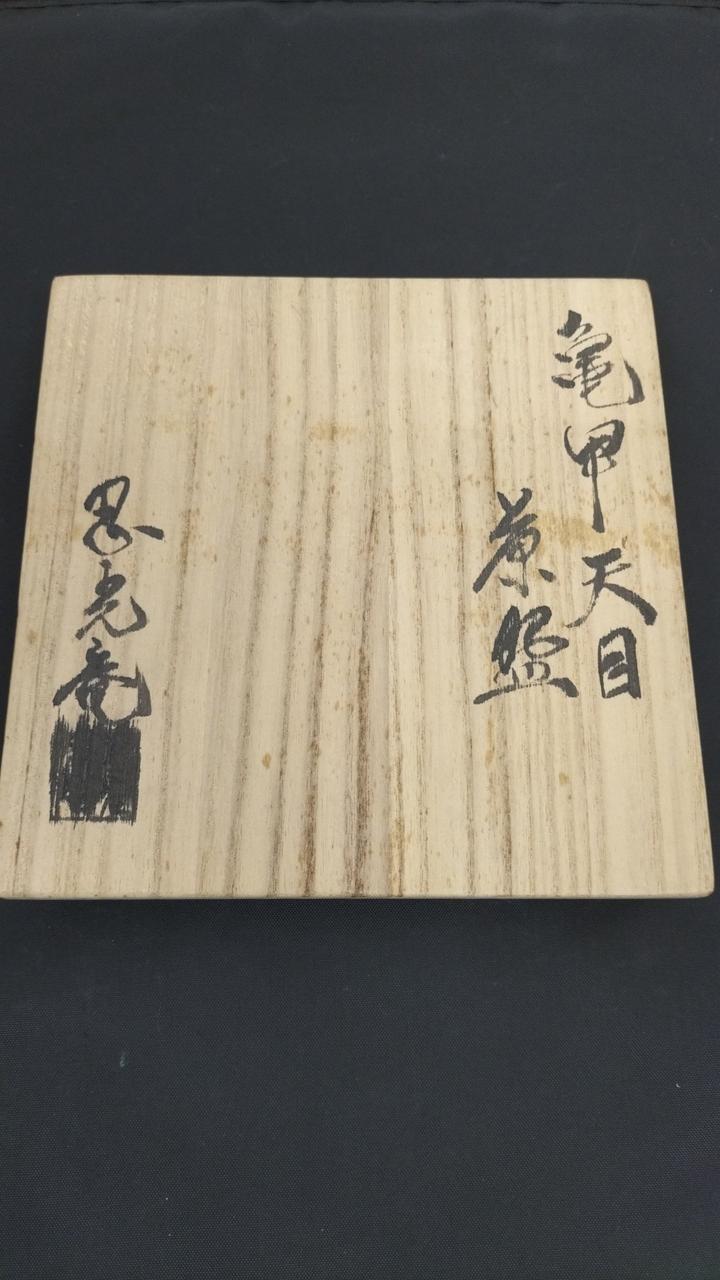 亀甲天目
茶盌
光